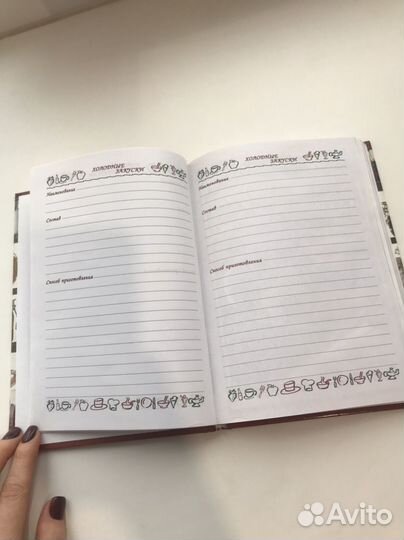 ХОЛОДНЫЕ
ЗАКУСКИ
Наименование
Состав
Способ приготовления
ХОЛОДНЫЕ
ЗАКУСКИ
Наименование
Состав
Способ приготовления
Avito